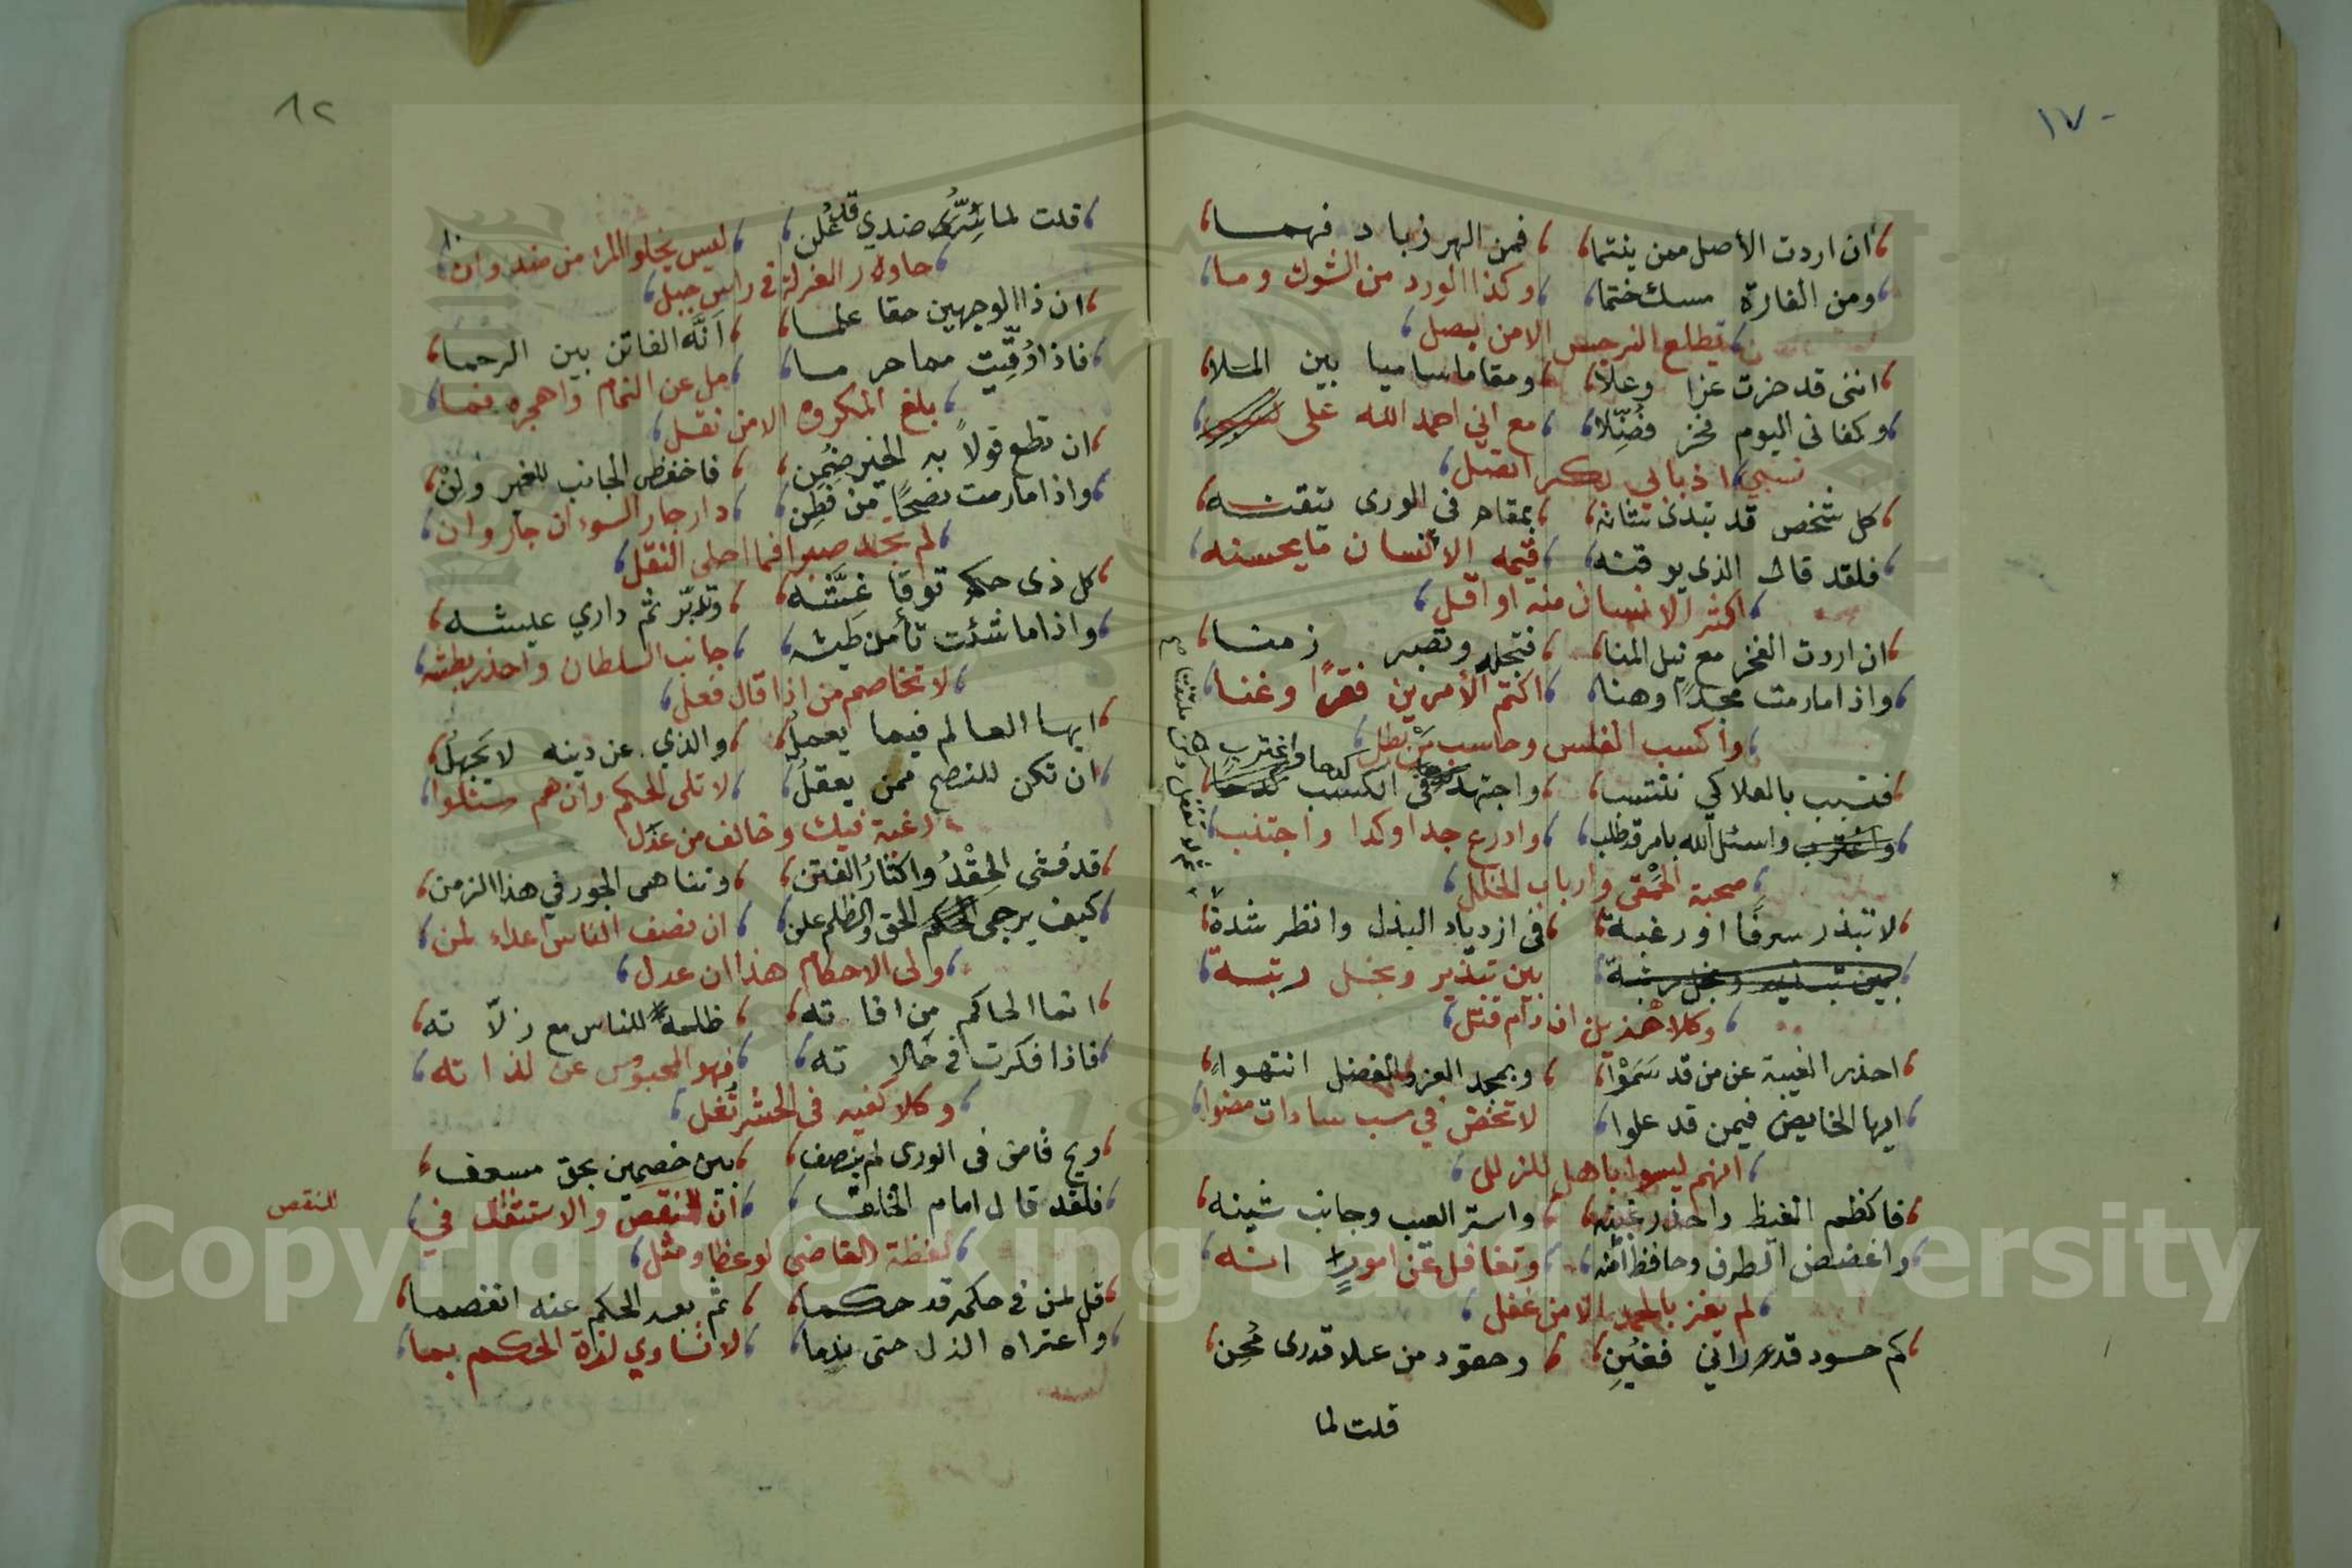 ١٧٠
ان اردت الأصل ممن ينتما فمن الهر زباد فهما
ومن الفارة مسك ختما وكذا الورد من الشوك وما
يطلع النرجس الا من بصل
اننى قد حزت عزا وعلا ومقاما ساميا بين الملا
وكفانى اليوم فخر فضلا مع اني احمد الله على
نسبي اذ بابي بكر اتصل
كل شخص قد تبدى شانه بمقام في الورى يتقنه
فلقد قال الذى يوقنه قيمه الانسان ما يحسنه
اكثر الانسان منه او اقل
ان اردت الفخر مع نيل المنا فتجلد وتصبر زمنا
واذا ما رمت مجدًا وهنا اكتم الأمرين فقرًا وغنا
واكسب الفلس وحاسب من بطل
فتسبب بالعلا كي تنتسب واجتهد في الكسب كدحا واغترب
واسئل الله بامر قد طلب وادرع جدا وكدا واجتنب
صحبة الحمقى وارباب الخلل
لا تبذر سرفًا او رغبة في ازدياد البذل وانظر شدة
بين تبذير وبخل رتبة
وكلا هذين ان دام قتل
احذر الغيبة عن من قد سَمَوْا وبمجد العز والفضل انتهوا
ايها الخايض فيمن قد علوا لا تخض في سب سادات مضوا
انهم ليسوا باهل للزلل
فاكظم الغيظ واحذر غبنه واستر العيب وجانب شينه
واغضض الطرف وحافظ امنه وتغافل عن امورٍ انه
لم يفز بالحمد الا من غفل
كم حسود قد راني فغُبِن وحقود من علا قدرى مُحِن
قلت لما
٨٢
قلت لما سُرَّ ضدي قد عُلن ليس يخلو المرء من ضد وان
حاول العزلة في راس جبل
ان ذا الوجهين حقا علما أنَّه الفاتن بين الرحما
مل عن النمام واهجره فما
بلغ المكروه الا من نقل
ان تطع قولاً به الخير ضمن فاخفض الجانب للغير ولِنْ
واذا ما رمت نصحًا من فَطِن دار جار السوء ان جار وان
لم تجد صبرا فما احلى النقل
كل ذى حكم توقا غشه وتدبر ثم داري عيشه
واذا ما شئت تأمن طيشه جانب السلطان واحذر بطشه
لا تخاصم من اذا قال فعل
ايها العالم فيما يعمل والذي عن دينه لا يَجهلُ
ان تكن للنصح ممن يعقلُ لا تلى الحكم وان هم سئلوا
رغبة فيك وخالف من عذل
قد فشى الحِقْدُ واكثارُ الفتن وتناهى الجور في هذا الزمن
كيف يرجى الحق والظلم علن ان نصف الناس اعداء لمن
ولى الاحكام هذا ان عدل
انما الحاكم مِن افاته ظلمه للناس مع زلاته
فاذا فكرت في حالاته فهو المحبوس عن لذاته
وكلا كفيه في الحشر تُغل
ويح قاض فى الورى لم ينصف بين خصمين بحق مسعف
فلقد قال امام ان للنقص والاستثقال في
للنقص
لفظة القاضى لوعظا ومثل
قل لمن في حكمه قد حكما ثم بعد الحكم عنه انفصما
واعتراه الذل حتى ندما لا تساوي لذة الحكم بما